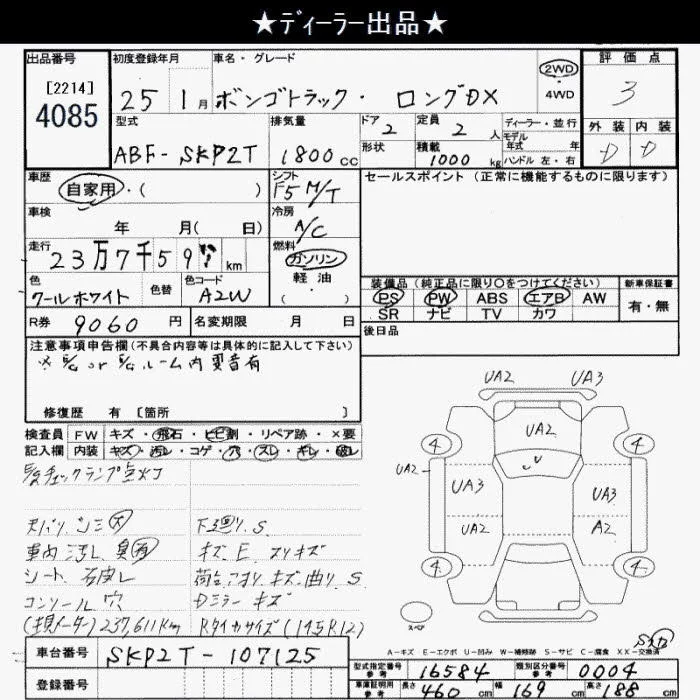 ★ディーラー出品★
出品番号
[2214]
4085
初度登録年月
25年1月
車名・グレード
ボンゴトラック・ ロングDX
2WD
・
4WD
評価点
3
型式
ABF-SKP2T
排気量
1800cc
ドア
2
形状
定員
2人
積載
1000kg
ディーラー・並行
モデル
年式 年
ハンドル 左・右
外装
D
内装
D
車歴
自家用・( )
シフト
F5 M/T
セールスポイント(正常に機能するものに限ります)
車検
年 月( 日)
冷房
A/C
走行
23万7千59 km
燃料
ガソリン
軽油
・( )
色
クールホワイト
色替
色コード
A2W
装備品(純正品に限り○をつけてください)
PS PW ABS エアB AW
SR ナビ TV カワ
新車保証書
有・無
R券 9060円
名変期限 月 日
後日品
注意事項申告欄(不具合内容等は具体的に記入して下さい)
※ E/G or E/G ルーム内 異音有
修復歴 有 [箇所 ]
検査員 FW キズ・飛石・ヒビ割・リペア跡・×要
記入欄 内装 キズ・汚レ・コゲ・穴・スレ・キレ・破レ
E/Gチェックランプ点灯
車内 汚レ 臭有
キズ. E. スリキズ
シート.
下廻リ. S.
コンソール 穴
Dミラー キズ
(実メーター) 237,611km
Rタイヤサイズ(145R12)
UA2
UA3
UA2
4
4
UA2
UA3
UA3
UA2
A2
4
4
スペア
A-キズ E-エクボ U-凹み W-補修跡 S-サビ C-腐食 XX-交換済
車台番号 SKP2T-107125
登録番号
型式指定番号
参考
16584
類別区分番号
参考
0004
車庫証明用
参考
長さ 460cm 幅 169cm 高さ 188cm